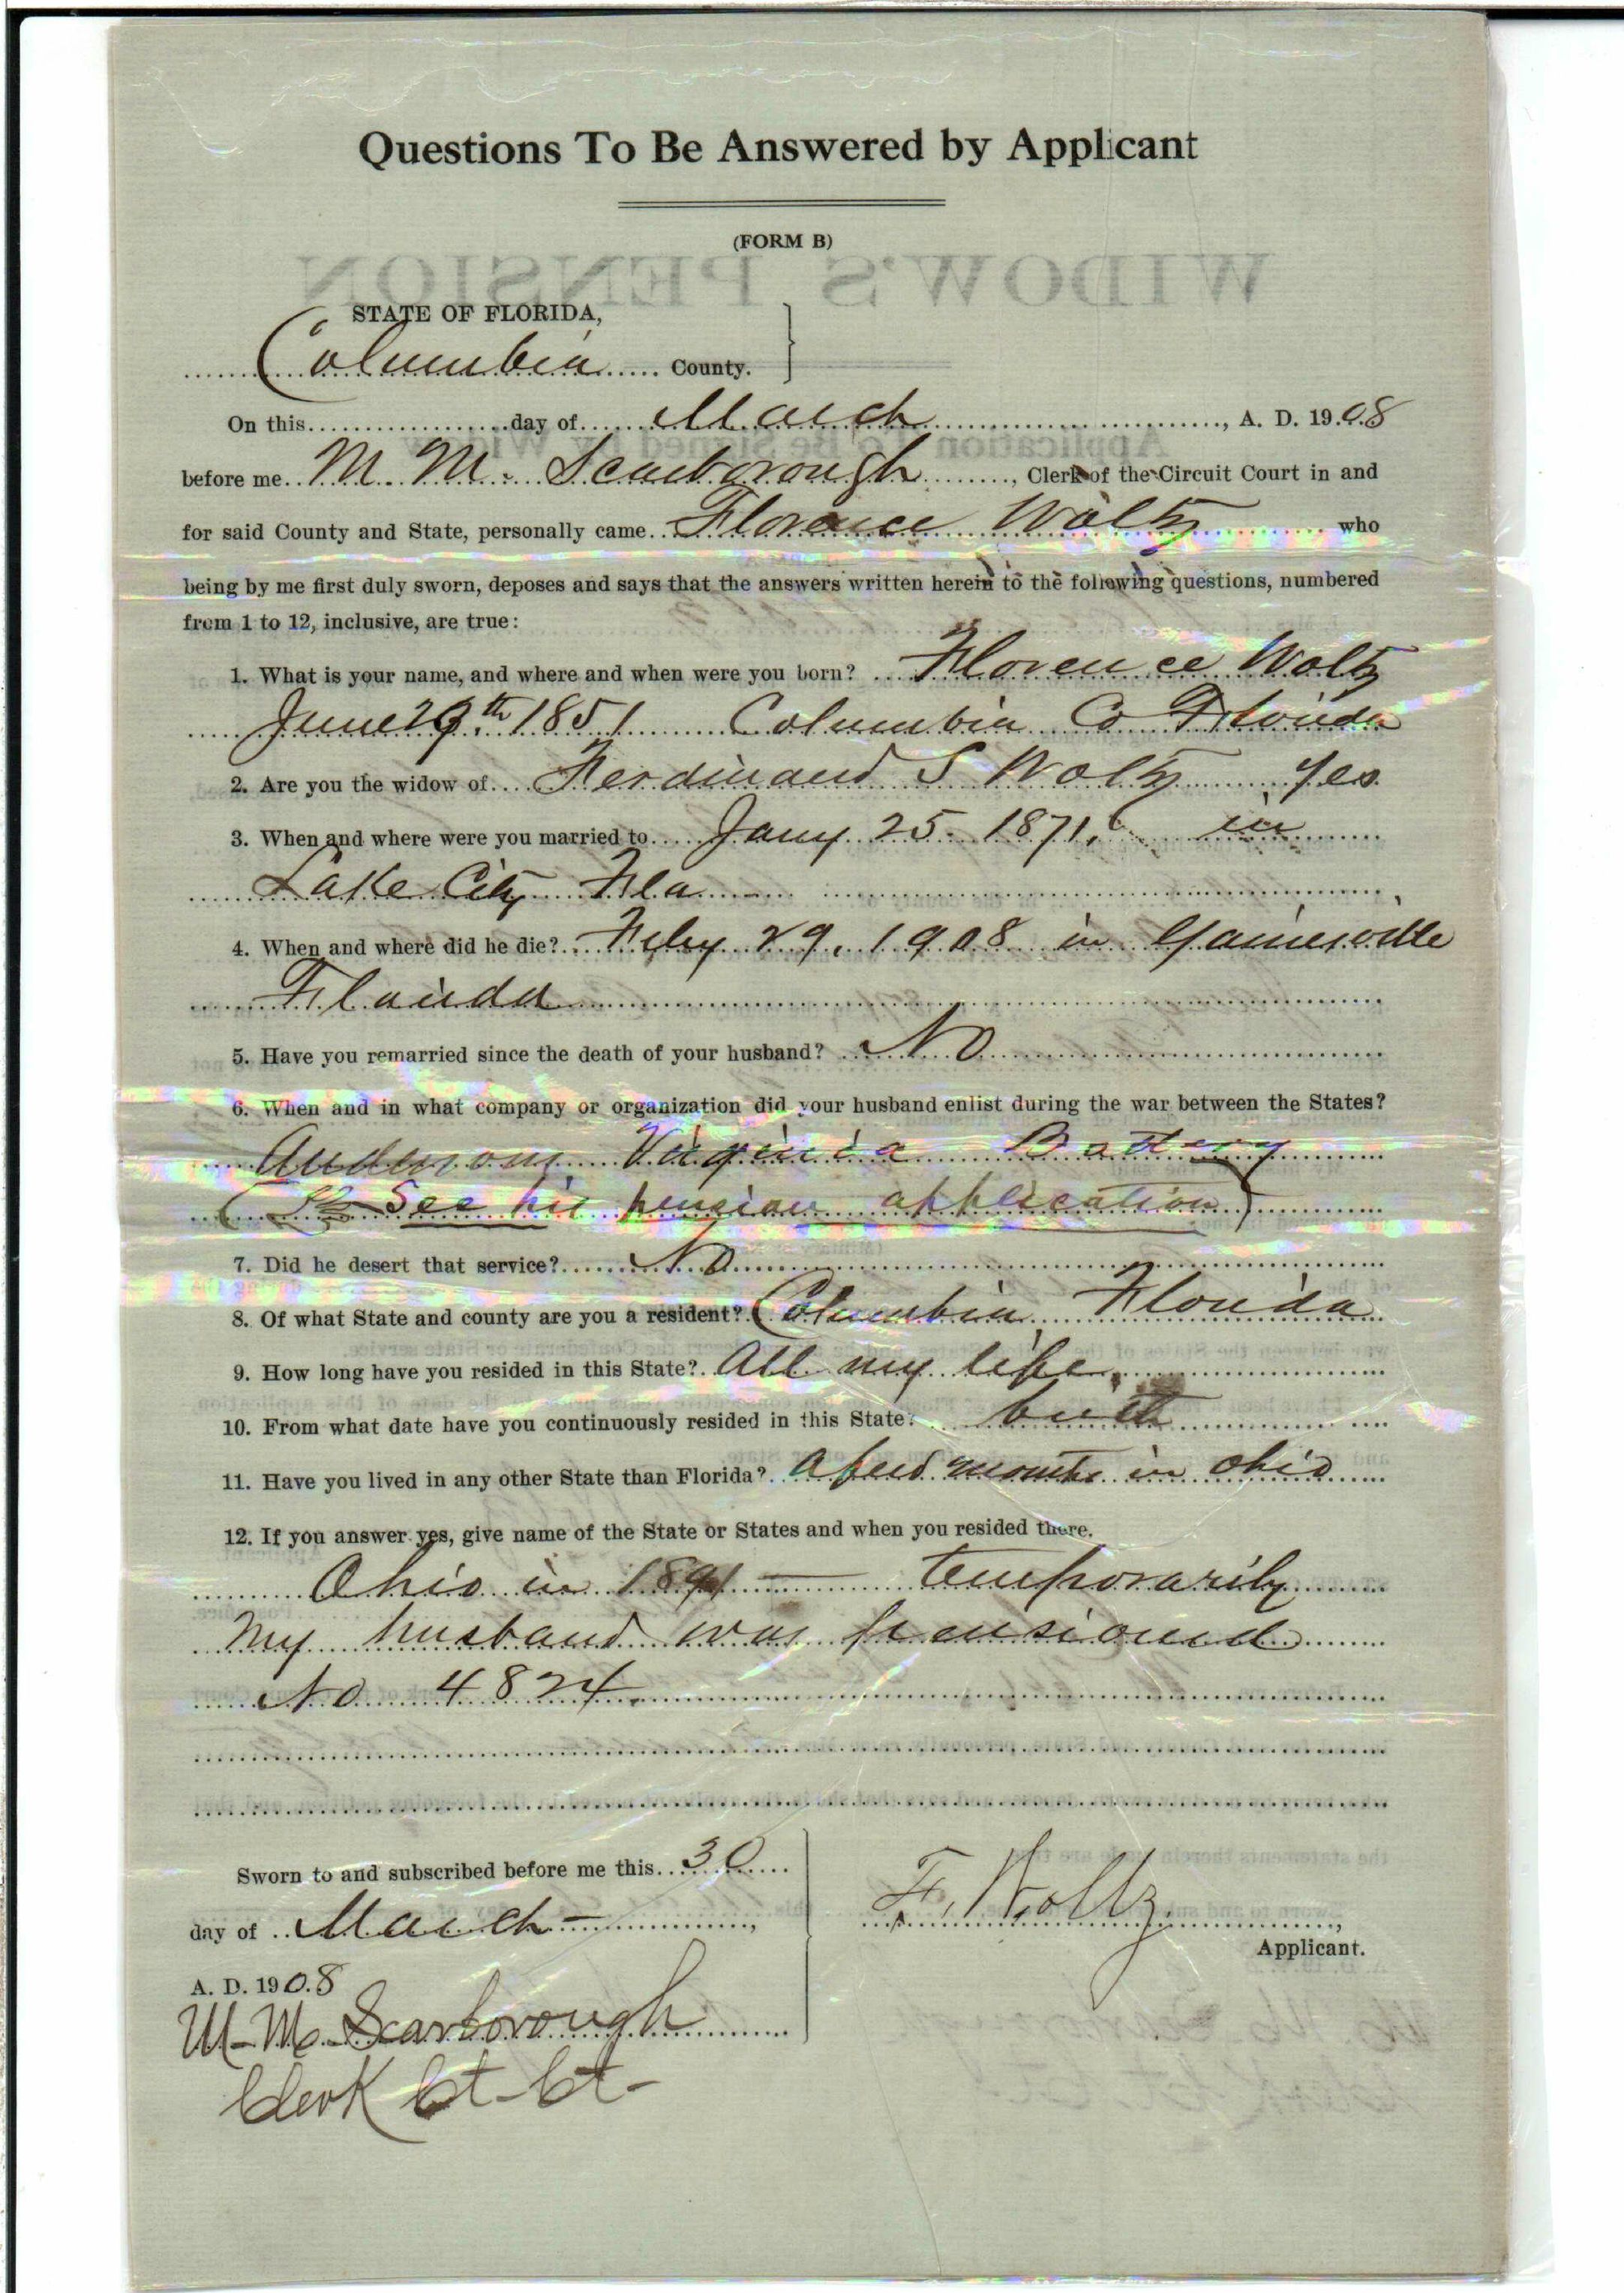 Questions To Be Answered by Applicant
(FORM B)
STATE OF FLORIDA,
Columbia County.
On this day of March, A. D. 1908
before me M. M. Scarborough, Clerk of the Circuit Court in and
for said County and State, personally came Florence Woltz who
being by me first duly sworn, deposes and says that the answers written herein to the following questions, numbered
from 1 to 12, inclusive, are true:
1. What is your name, and where and when were you born? Florence Woltz
June 29th, 1851 Columbia Co Florida
2. Are you the widow of Ferdinand S Woltz yes
3. When and where were you married to Jany 25 1871, in
Lake City Fla
4. When and where did he die? Feby 29, 1908 in Gainesville
Florida
5. Have you remarried since the death of your husband? No
6. When and in what company or organization did your husband enlist during the war between the States?
Andersons Virginia Battery
(See his pension application)
7. Did he desert that service? No
8. Of what State and county are you a resident? Columbia, Florida
9. How long have you resided in this State? All my life
10. From what date have you continuously resided in this State? birth
11. Have you lived in any other State than Florida? A few months in Ohio
12. If you answer yes, give name of the State or States and when you resided there.
Ohio in 1891 — temporarily
My husband was pensioned
No 4824.
Sworn to and subscribed before me this 30
day of March,
A. D. 1908
M. M. Scarborough
Clerk Ct. Ct.
F. Woltz,
Applicant.